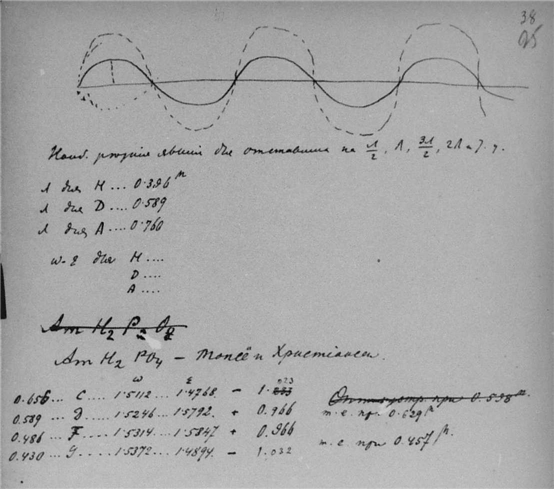 38
95
для отставания на λ/2, λ, 3λ/2, 2λ и т. д.
λ для H ... 0.396 μ
λ для D .... 0.589
λ для A .... 0.760
ω-ε для H ....
D ....
A ....
Am H2 P O4
Am H2 PO4 — Топсё и Христiансен.
ω ε
0.656 ... C .... 1.5112 ... 1.4768 — 1.023
0.589 ... D .... 1.5246 ... 1.5792 + 0.966
0.486 ... F .... 1.5314 ... 1.5847 + 0.966
0.430 ... G .... 1.5372 ... 1.4894 — 1.032
при 0.598 μ
т. е. при 0.629 μ
т. е. при 0.457 μ.